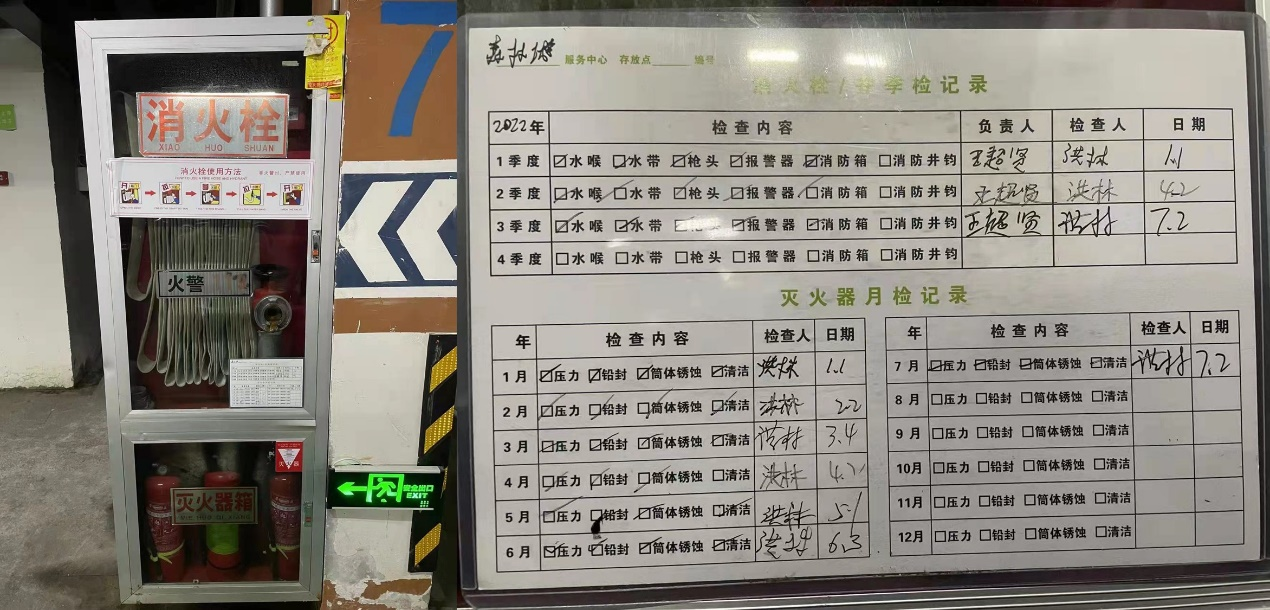 7
消火栓
XIAO HUO SHUAN
消火栓使用方法
火警
灭火器箱
安全出口
EXIT
服务中心 存放点 编号
季检记录
2022年 检查内容 负责人 检查人 日期
1季度 ☑水喉 ☑水带 ☑枪头 ☑报警器 ☑消防箱 ☐消防井钧 王超贤 洪林 1.1
2季度 ☑水喉 ☑水带 ☑枪头 ☑报警器 ☑消防箱 ☐消防井钧 王超贤 洪林 4.2
3季度 ☑水喉 ☑水带 ☑枪头 ☑报警器 ☑消防箱 ☐消防井钧 王超贤 洪林 7.2
4季度 ☐水喉 ☐水带 ☐枪头 ☐报警器 ☐消防箱 ☐消防井钧
灭火器月检记录
年 检查内容 检查人 日期
1月 ☑压力 ☑铅封 ☑筒体锈蚀 ☑清洁 洪林 1.1
2月 ☑压力 ☑铅封 ☑筒体锈蚀 ☑清洁 洪林 2.2
3月 ☑压力 ☑铅封 ☑筒体锈蚀 ☑清洁 洪林 3.4
4月 ☑压力 ☑铅封 ☑筒体锈蚀 ☐清洁 洪林 4.2
5月 ☑压力 ☑铅封 ☑筒体锈蚀 ☑清洁 洪林 5.1
6月 ☑压力 ☑铅封 ☑筒体锈蚀 ☑清洁 洪林 6.3
年 检查内容 检查人 日期
7月 ☑压力 ☑铅封 ☑筒体锈蚀 ☑清洁 洪林 7.2
8月 ☐压力 ☐铅封 ☐筒体锈蚀 ☐清洁
9月 ☐压力 ☐铅封 ☐筒体锈蚀 ☐清洁
10月 ☐压力 ☐铅封 ☐筒体锈蚀 ☐清洁
11月 ☐压力 ☐铅封 ☐筒体锈蚀 ☐清洁
12月 ☐压力 ☐铅封 ☐筒体锈蚀 ☐清洁